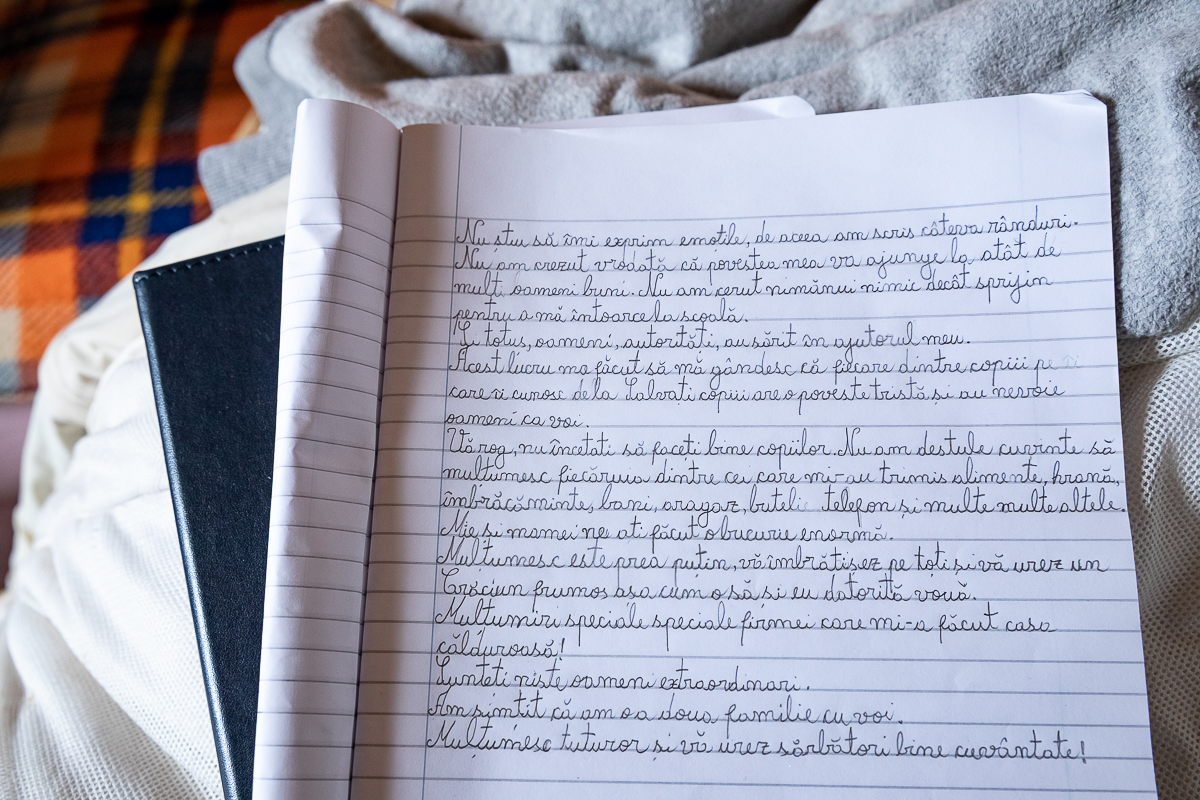 Nu stiu să îmi exprim emotile, de aceea am scris câteva rânduri.
Nu am crezut vrodată că povestea mea va ajunge la atât de
multi oameni buni. Nu am cerut nimănui nimic decât sprijin
pentru a mă întoarce la scoală.
Și totus, oameni, autorităti, au sărit în ajutorul meu.
Acest lucru ma făcut să mă gândesc că fiecare dintre copiii pe
care îi cunosc de la Salvați copiii are o poveste tristă și au nevoie
oameni ca voi.
Vă rog, nu încetati să faceti bine copiilor. Nu am destule cuvinte să
multumesc fiecăruia dintre cei care mi-au trimis alimente, hrană,
îmbrăcăminte, bani, aragaz, butelie telefon și multe multe altele.
Mie si mamei ne ati făcut o bucurie enormă.
Mulțumesc este prea puțin, vă îmbrătisez pe toți și vă urez un
Crăciun frumos asa cum o să și eu datorită vouă.
Multumiri speciale speciale firmei care mi-a făcut casa
călduroasă!
Sunteti niste oameni extraordinari.
Am simtit că am o a doua familie cu voi.
Mulțumesc tuturor și vă urez sărbători bine cuvântate!